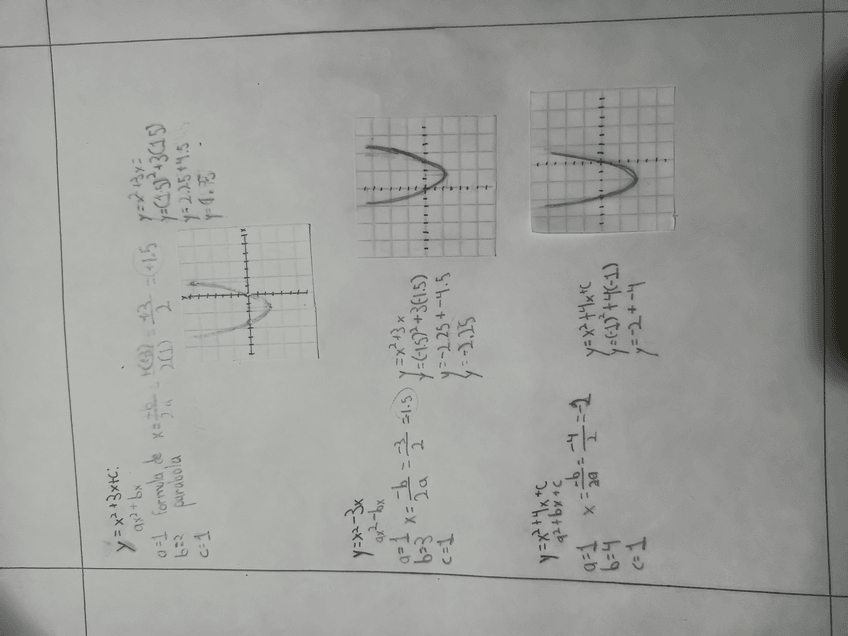 y=x²+3x+c:
ax²+bx
a=1 formula de x=-b/2a
b=2 parabola
c=1
= +(3)/2(1) = +3/2 = +1.5
y=x²+3x=
y=(1.5)²+3(1.5)
y=2.25+4.5
y=x²-3x
ax²-bx
a=1 x=-b/2a = -3/2 = 1.5
b=3
c=1
y=x²+3x
y=(-1.5)²+3(-1.5)
y=-2.25+-4.5
y=-2.25
y=x²+4x+c
a²+bx+c
a=1 x=-b/2a = -4/2 = -2
b=4
c=1
y=x²+4x+c
y=(-1)²+4(-1)
y=-2+-4